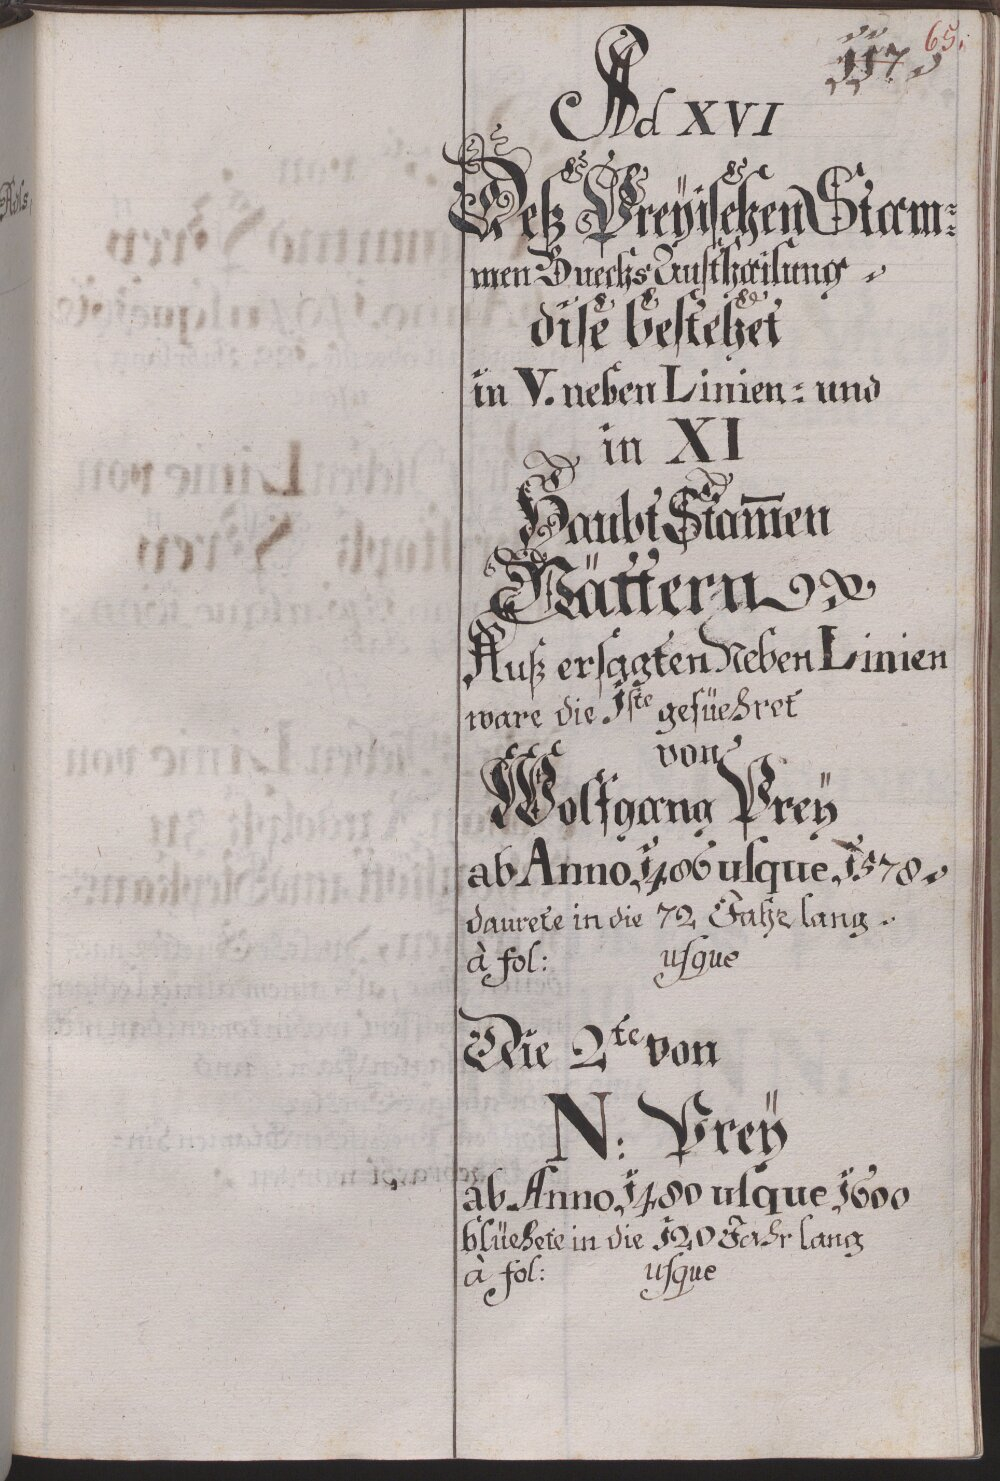 65.
117
Ad XVI
Deß Preÿischen Stam=
men Buechs Austhailung
dise bestehet
in V. neben Linien = und
in XI
Haubt Stam̄en
Vättern
Auß ersagten Neben Linien
ware die 1ste gefüehret
von
Wolfgang Preÿ
ab Anno 1486 usque 1578
daurete in die 72 Jahr lang.
à fol: usque
Die 2te von
N: Preÿ
ab Anno 1480 usque 1600
blüehete in die 120 Jahr lang
à fol: usque